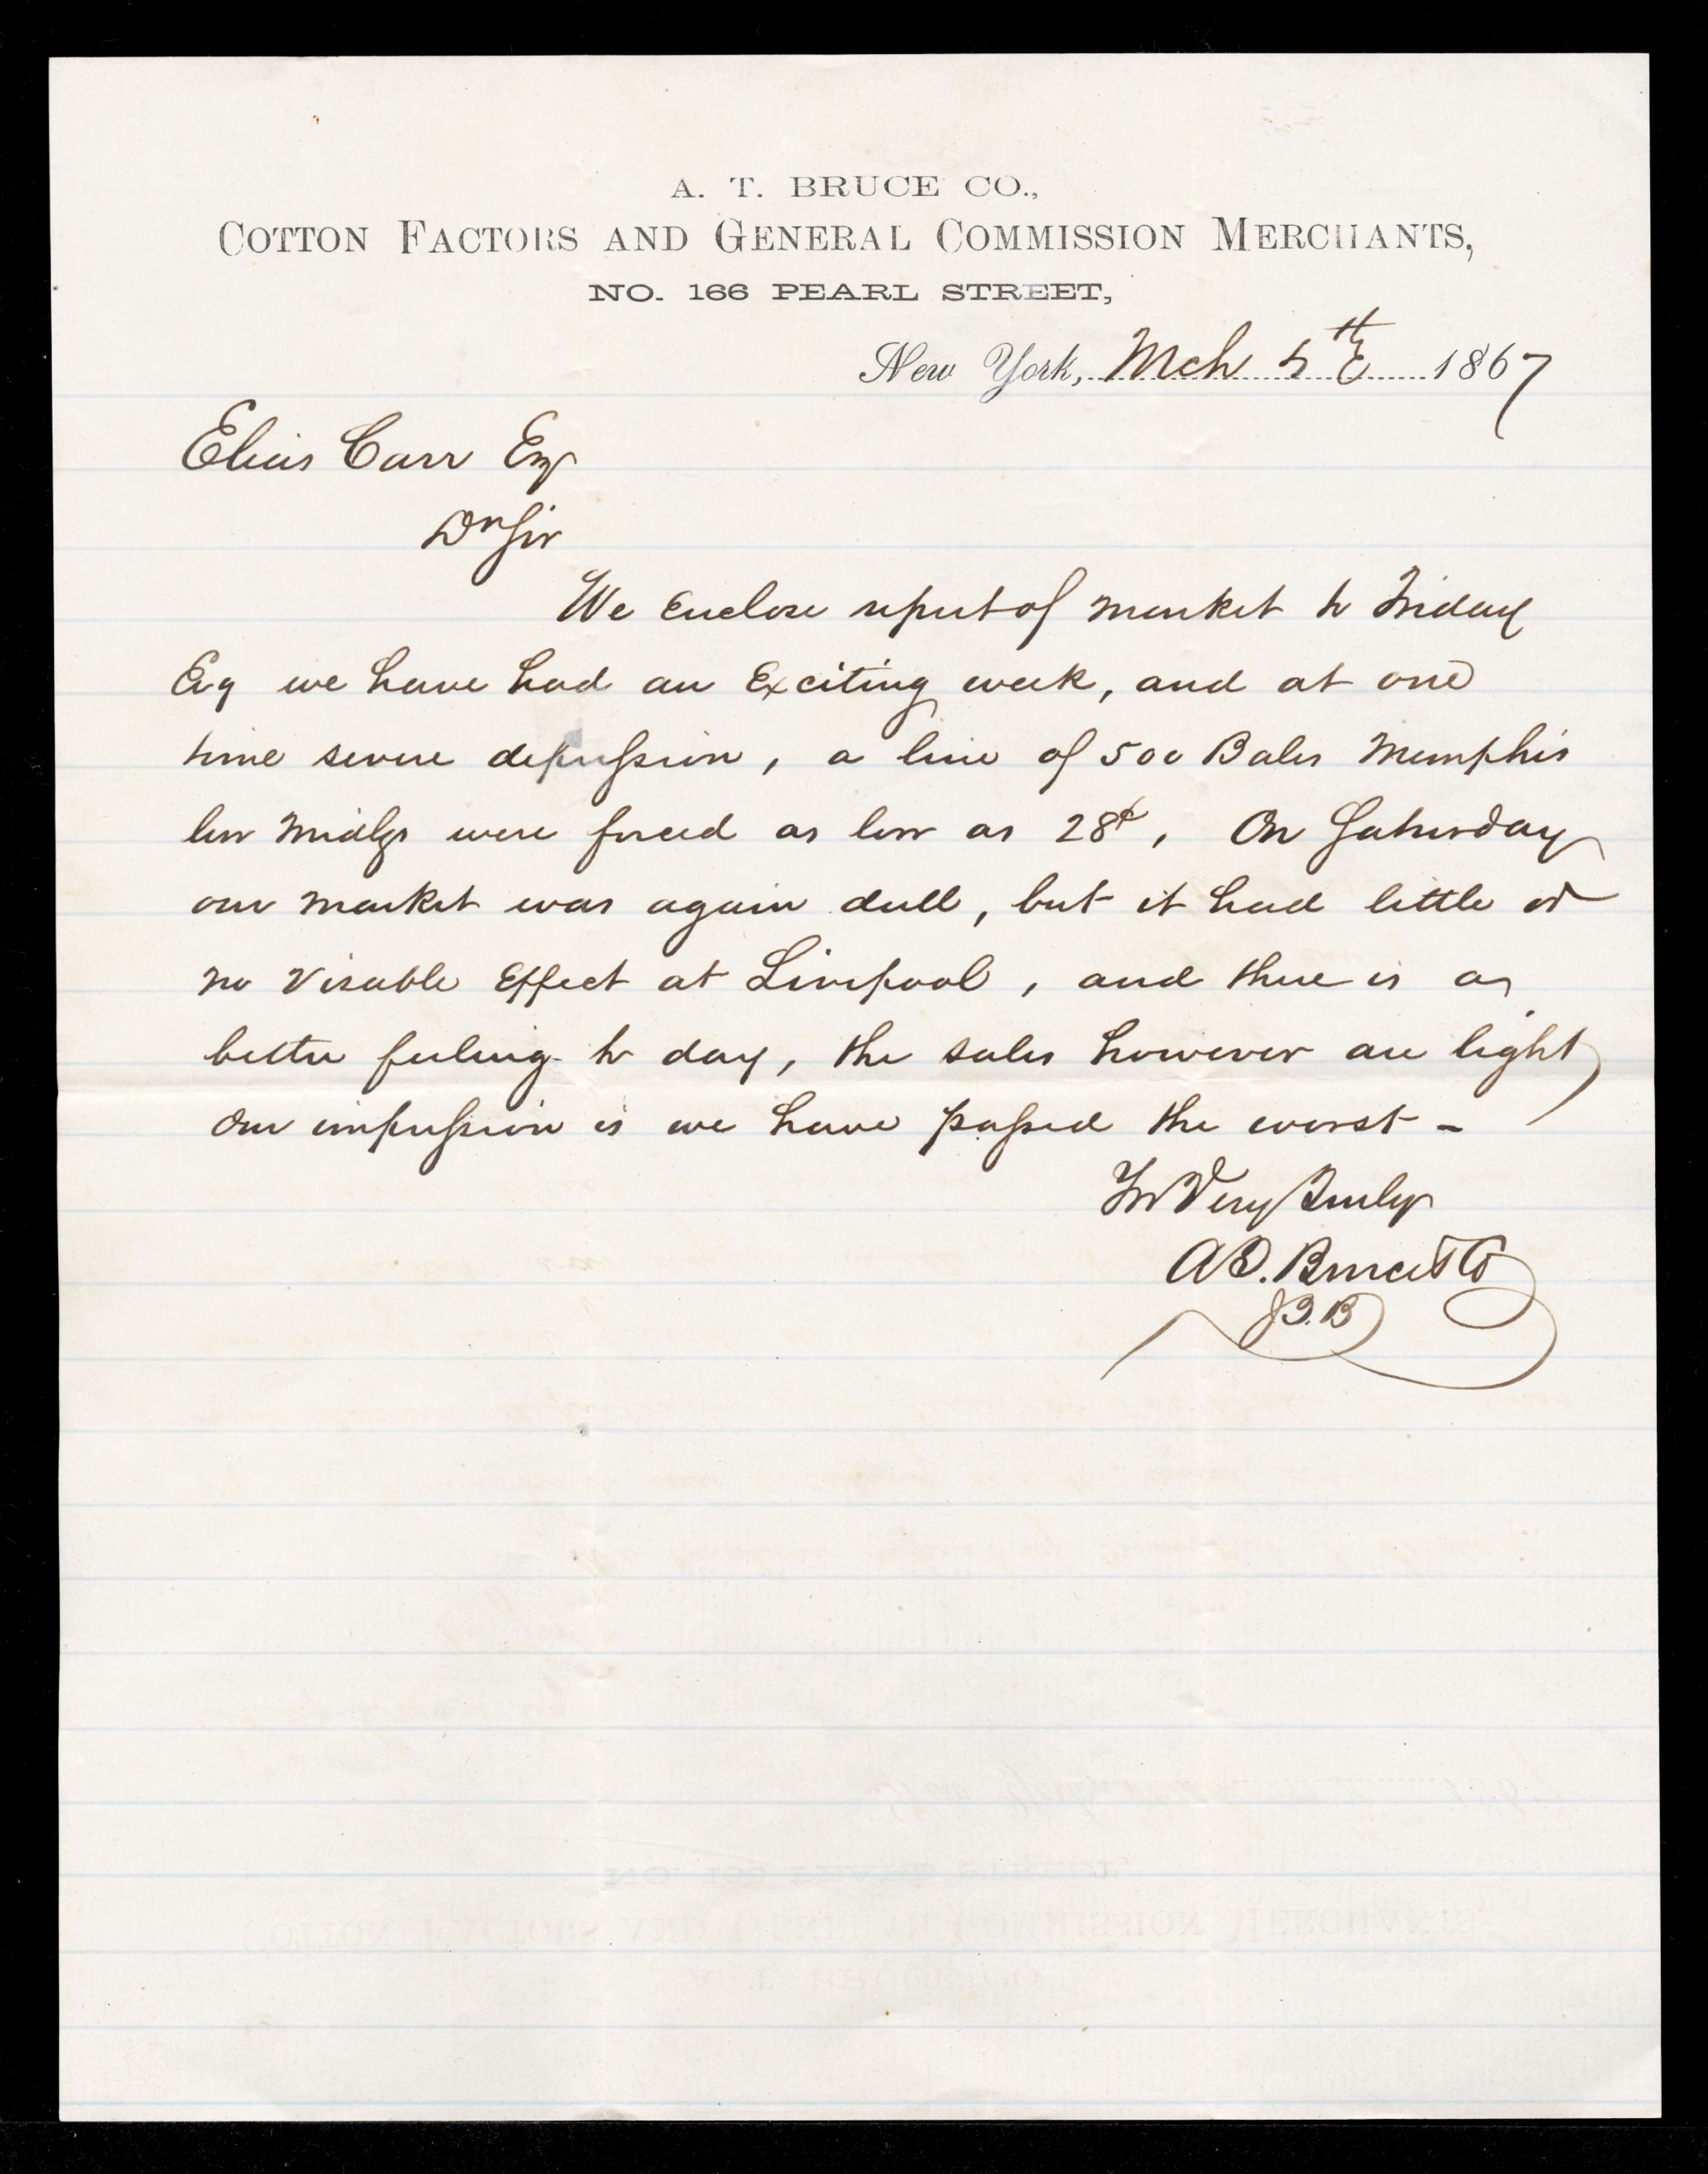 A. T. BRUCE CO.,
COTTON FACTORS AND GENERAL COMMISSION MERCHANTS,
NO. 166 PEARL STREET,
New York, Mch 5th 1867
Elias Carr Esq
Dr Sir
We Enclose report of market to Friday
Evg we have had an Exciting week, and at one
time severe depression, a line of 500 Bales Memphis
low Midlgs were forced as low as 28¢, On Saturday
our market was again dull, but it had little or
no Visable Effect at Liverpool, and there is a
better feeling to day, the sales however are light
Our impression is we have passed the worst -
Yrs Very Truly
A.T. Bruce & Co
J.B